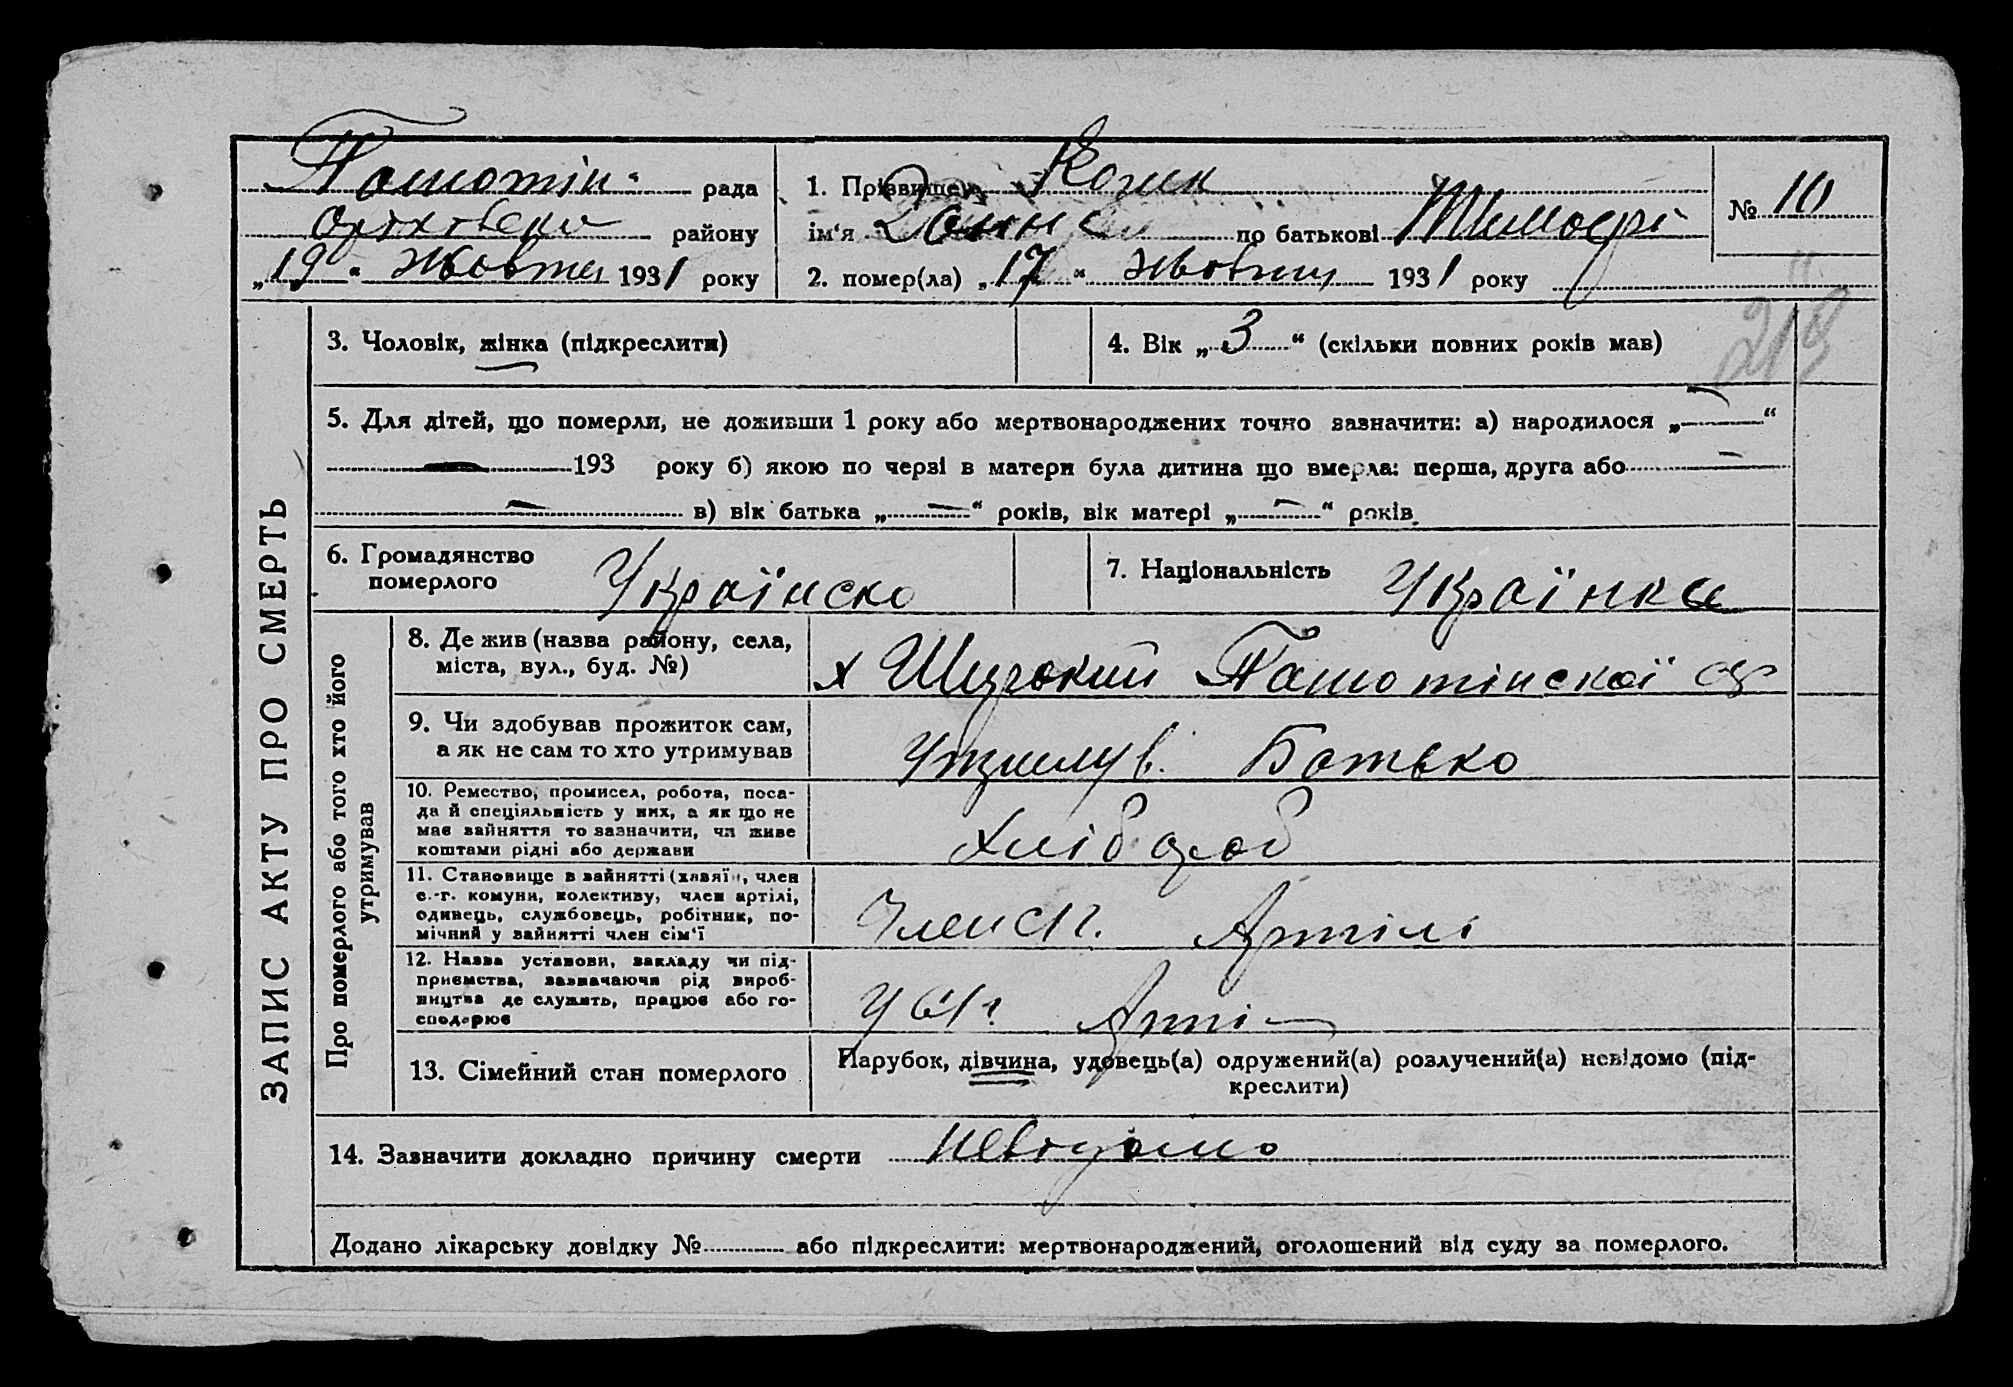 рада
району
„ 19 “ Жовтня 1931 року
1. Прізвище Козик
ім‘я по батькові
№ 10
2. помер(ла) „ 17 “ жовтня 1931 року
218
ЗАПИС АКТУ ПРО СМЕРТЬ
3. Чоловік, жінка (підкреслити)
4. Вік „ 3 “ (скільки повних років мав)
5. Для дітей, що померли, не доживши 1 року або мертвонароджених точно зазначити: а) народилося „ — “
— 193 року б) якою по черзі в матери була дитина що вмерла: перша, друга або —
— в) вік батька „ — “ років, вік матері „ — “ років.
6. Громадянство
померлого
Українско
7. Національність Українка
Про померлого або того хто його
утримував
8. Де жив (назва району, села,
міста, вул., буд. №)
х
9. Чи здобував прожиток сам,
а як не сам то хто утримував
Батько
10. Ремество, промисел, робота, поса-
да й спеціяльність у них, а як що не
має зайняття то зазначити, чи живе
коштами рідні або держави
Хлібороб
11. Становище в зайнятті (хазяїн, член
с.-г. комуни, колективу, член артілі,
одинець, службовець, робітник, по-
мічний у зайнятті член сім‘ї
Член с/г. Артілі
12. Назва установи, закладу чи під-
приємства, зазначаючи рід вироб-
ництва де служить, працює або го-
сподарює
У с/г. Арті
13. Сімейний стан померлого
Парубок, дівчина, удовець(а) одружений(а) розлучений(а) невідомо (під-
креслити)
14. Зазначити докладно причину смерти невідомо
Додано лікарську довідку № або підкреслити: мертвонароджений, оголошений від суду за померлого.